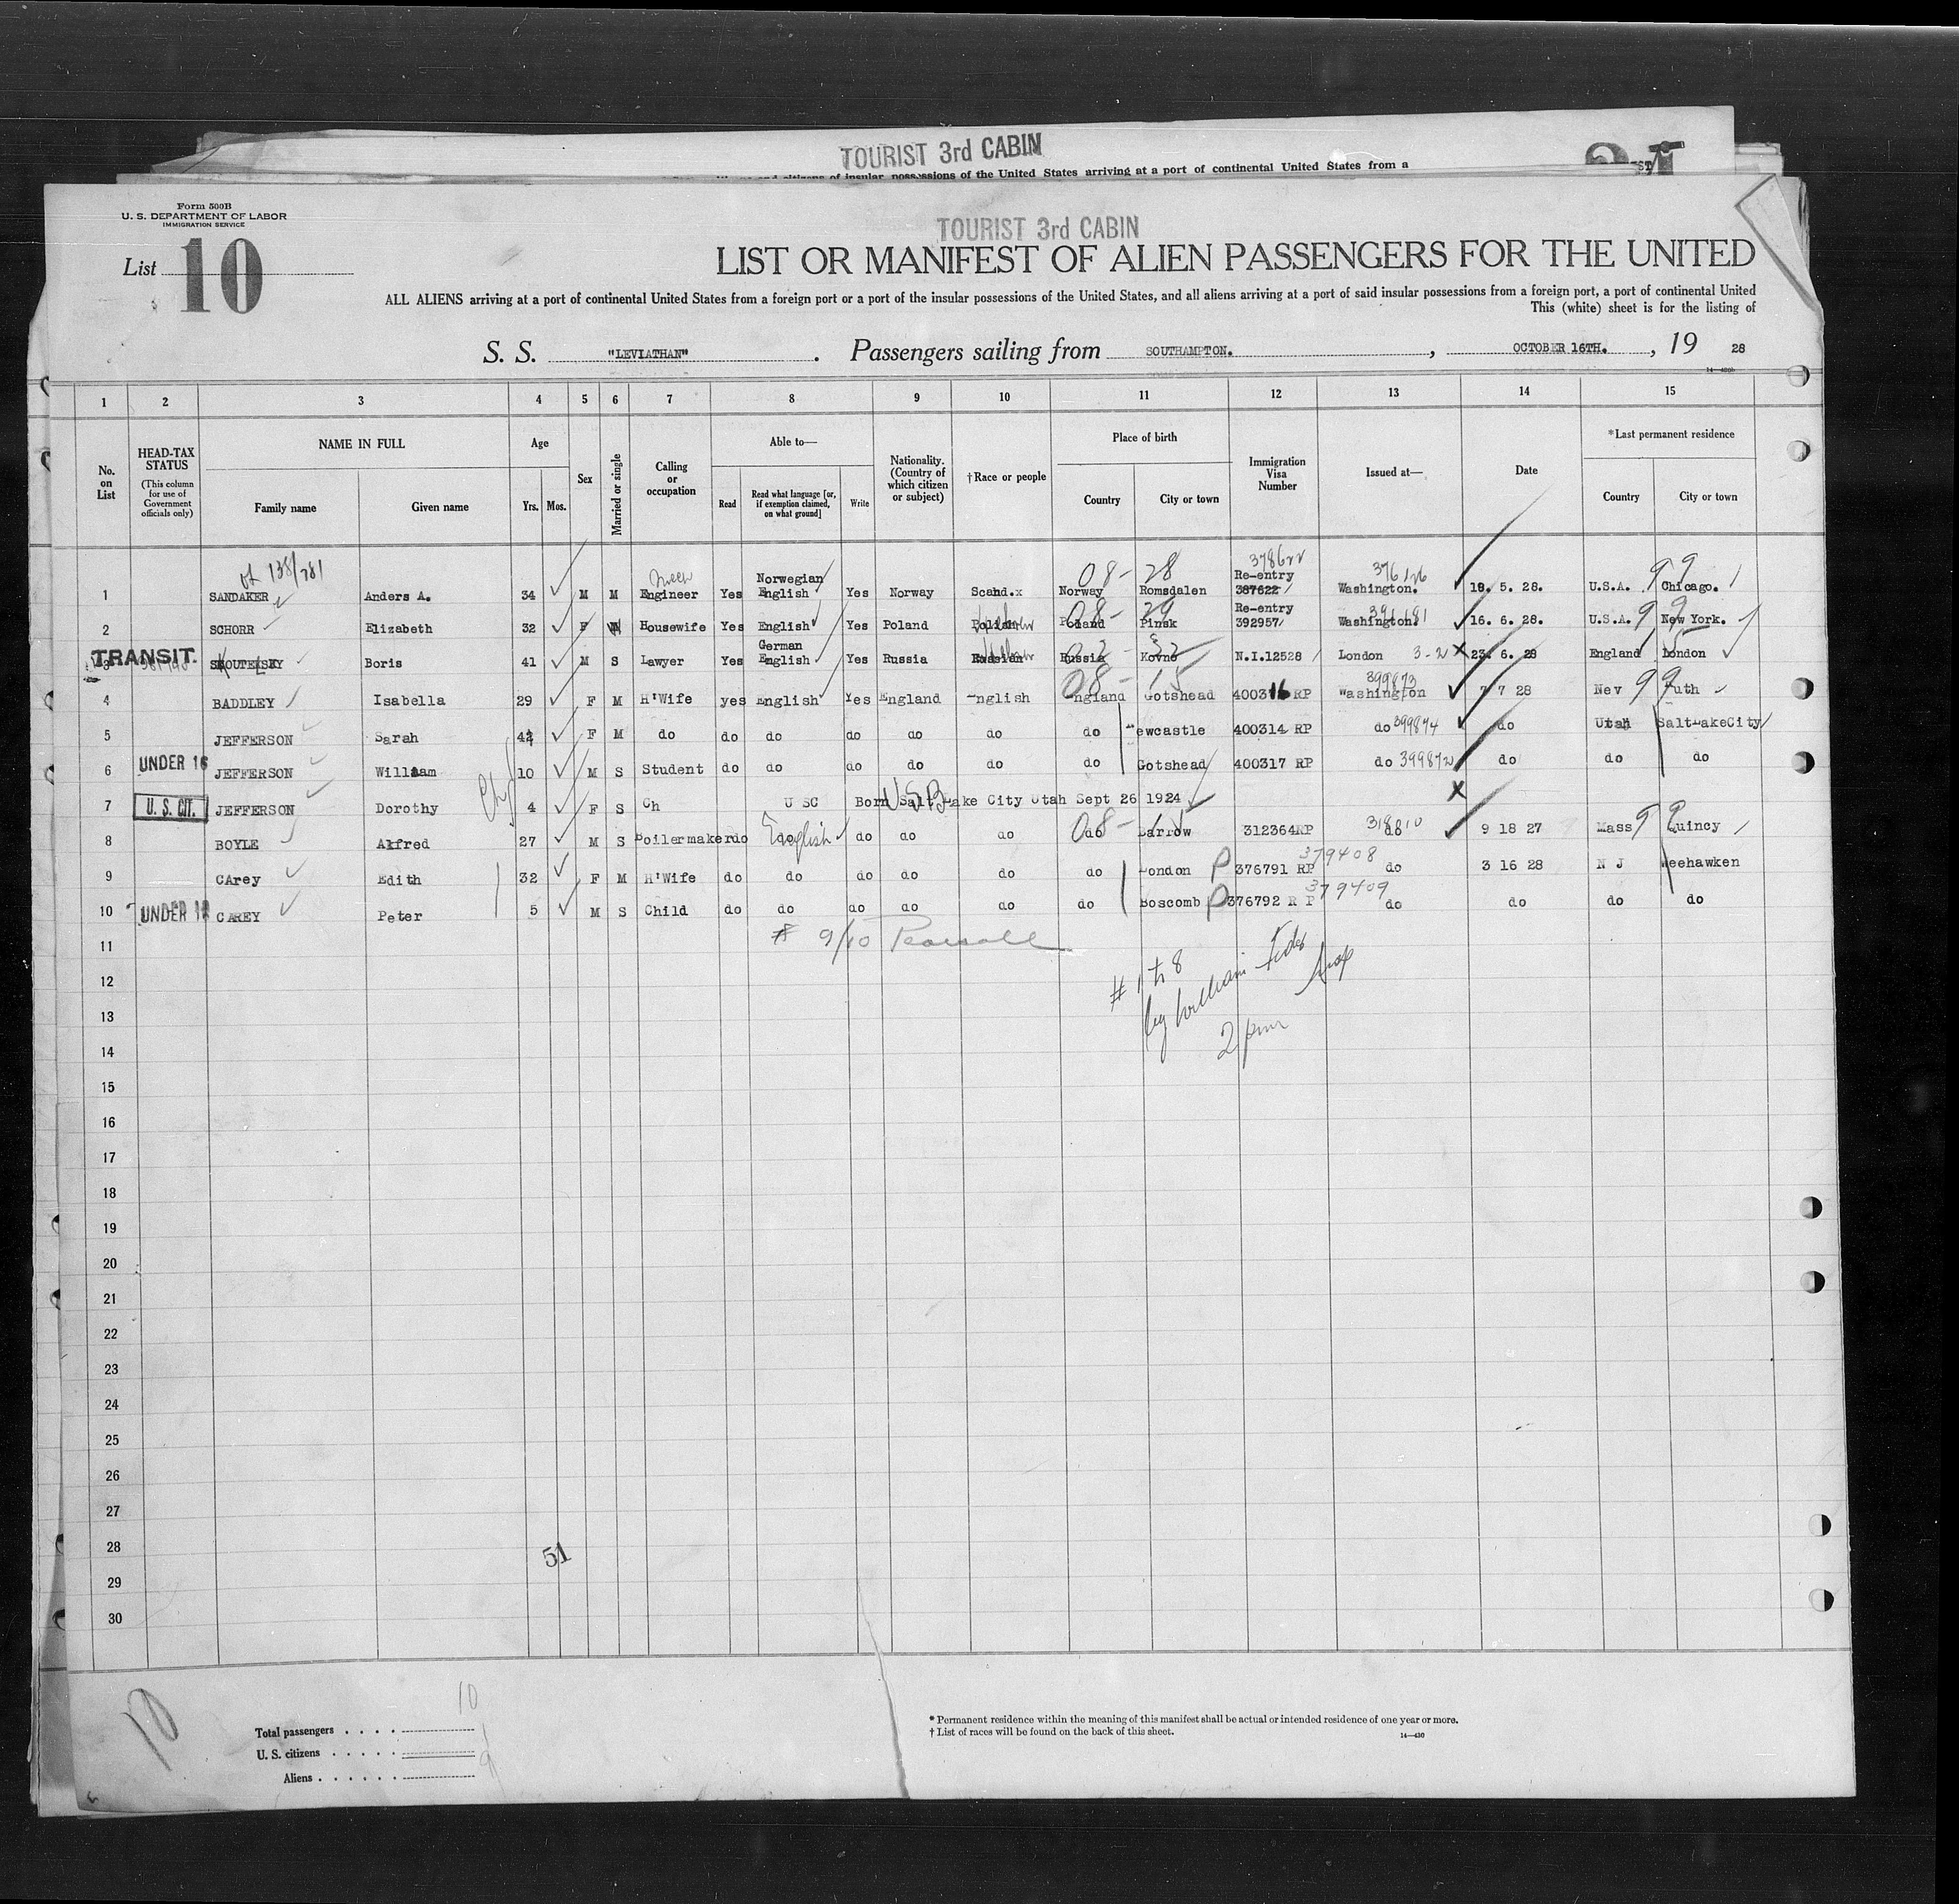 TOURIST 3rd CABIN
possessions of the United States arriving at a port of continental United States from a
Form 500B
U. S. DEPARTMENT OF LABOR
IMMIGRATION SERVICE
TOURIST 3rd CABIN
List 10
LIST OR MANIFEST OF ALIEN PASSENGERS FOR THE UNITED
ALL ALIENS arriving at a port of continental United States from a foreign port or a port of the insular possessions of the United States, and all aliens arriving at a port of said insular possessions from a foreign port, a port of continental United
This (white) sheet is for the listing of
S. S. "LEVIATHAN" . Passengers sailing from SOUTHAMPTON. , OCTOBER 16TH. , 19 28
1 2 3 4 5 6 7 8 9 10 11 12 13 14 15
No. on List
HEAD-TAX STATUS (This column for use of Government officials only)
NAME IN FULL Family name Given name
Age Yrs. Mos.
Sex
Married or single
Calling or occupation
Able to— Read Read what language [or, if exemption claimed, on what ground] Write
Nationality. (Country of which citizen or subject)
†Race or people
Place of birth Country City or town
Immigration Visa Number
Issued at—
Date
*Last permanent residence Country City or town
138/781 08- 28 378622 376126 99
1 SANDAKER Anders A. 34 M M Engineer Yes Norwegian English Yes Norway Scand.x Norway Romsdalen Re-entry 387622 Washington. 18. 5. 28. U.S.A. Chicago.
08- 29 391681 99
2 SCHORR Elizabeth 32 F M Housewife Yes English Yes Poland Polish Poland Pinsk Re-entry 392957 Washington. 16. 6. 28. U.S.A. New York.
TRANSIT.
3 Boris 41 M S Lawyer Yes German English Yes Russia Russian Russia Kovno N.I.12528 London 3-2 X 23. 6. 28 England London
08- 15 399873 99
4 BADDLEY Isabella 29 F M H'Wife yes English Yes England nglish ngland Gotshead 400316 RP Washington 7 7 28 Nev Ruth
5 JEFFERSON Sarah 44 F M do do do do do do do ewcastle 400314 RP do 399874 do Utah SaltLakeCity
6 UNDER 16 JEFFERSON William 10 M S Student do do do do do do Gotshead 400317 RP do 399872 do do do
7 U. S. CIT. JEFFERSON Dorothy 4 F S Ch U SC Born Salt Lake City Utah Sept 26 1924 USB X
8 BOYLE Alfred 27 M S Boilermaker do do English do do do do 08- Barrow 312364RP do 318810 9 18 27 Mass 99 Quincy
9 CArey Edith 32 F M H'Wife do do do do do do London P 376791 RP 379408 do 3 16 28 N J Weehawken
10 UNDER CAREY Peter 5 M S Child do do do do do do Boscomb P 376792 R P 379409 do do do do
11 # 9/10
12 # 1 to 8
13 by William
14 2 pm
15
16
17
18
19
20
21
22
23
24
25
26
27
28 51
29
30
10
Total passengers . . . . 10
U. S. citizens . . . . . 1
Aliens . . . . . . 9
* Permanent residence within the meaning of this manifest shall be actual or intended residence of one year or more.
† List of races will be found on the back of this sheet.
14—430